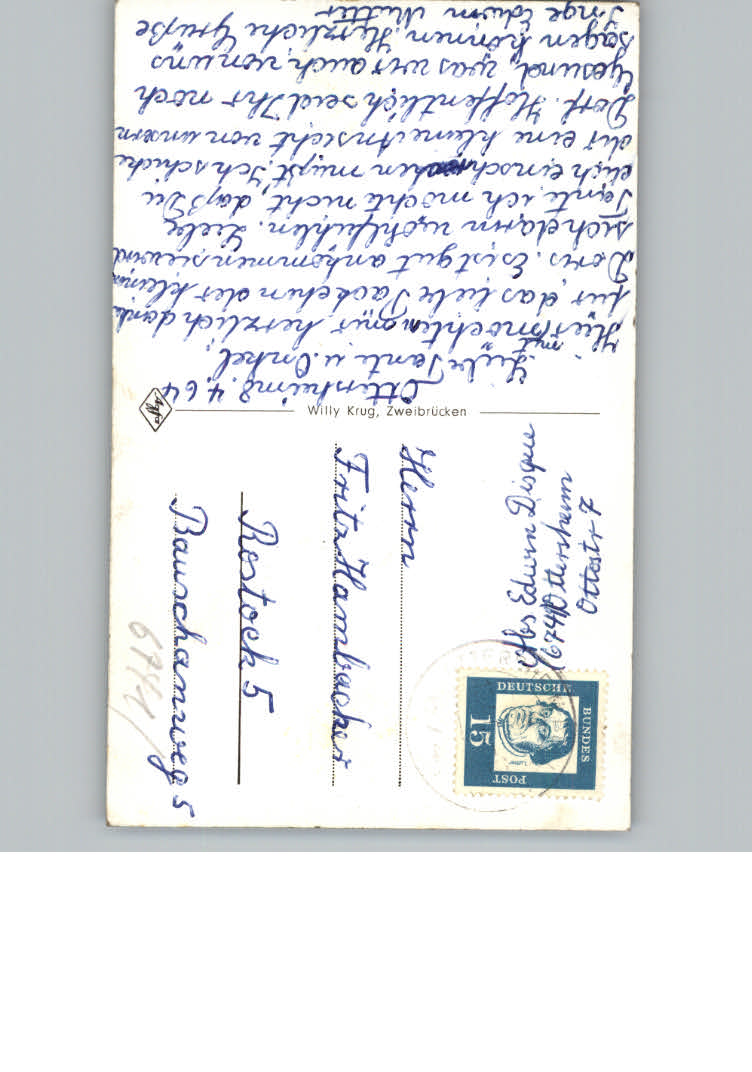 Ottersheim 8.4.64
Liebe Tante u. Onkel!
Hiermit möchten wir herzlich danken
für das liebe Jäckchen der kleinen
Doris. Es ist gut ankommen sie wird
sich darin wohlfühlen. Liebe
Tante ich möchte nicht, daß Du
dich einschränken mußt. Ich schicke
dir eine kleine Ansicht von unserm
Dorf. Hoffentlich seid Ihr noch
Gesund, was wir auch von uns
sagen können. Herzliche Grüße
Inge Edwin Mutter
Agfa
Willy Krug, Zweibrücken
Abs Edwin Disque
6741 Ottersheim
Ottostr 7
Herrn
Fritz Hambacher
Rostock 5
Bauschanweg 5
6741
DEUTSCHE
BUNDES
POST
15
Luther